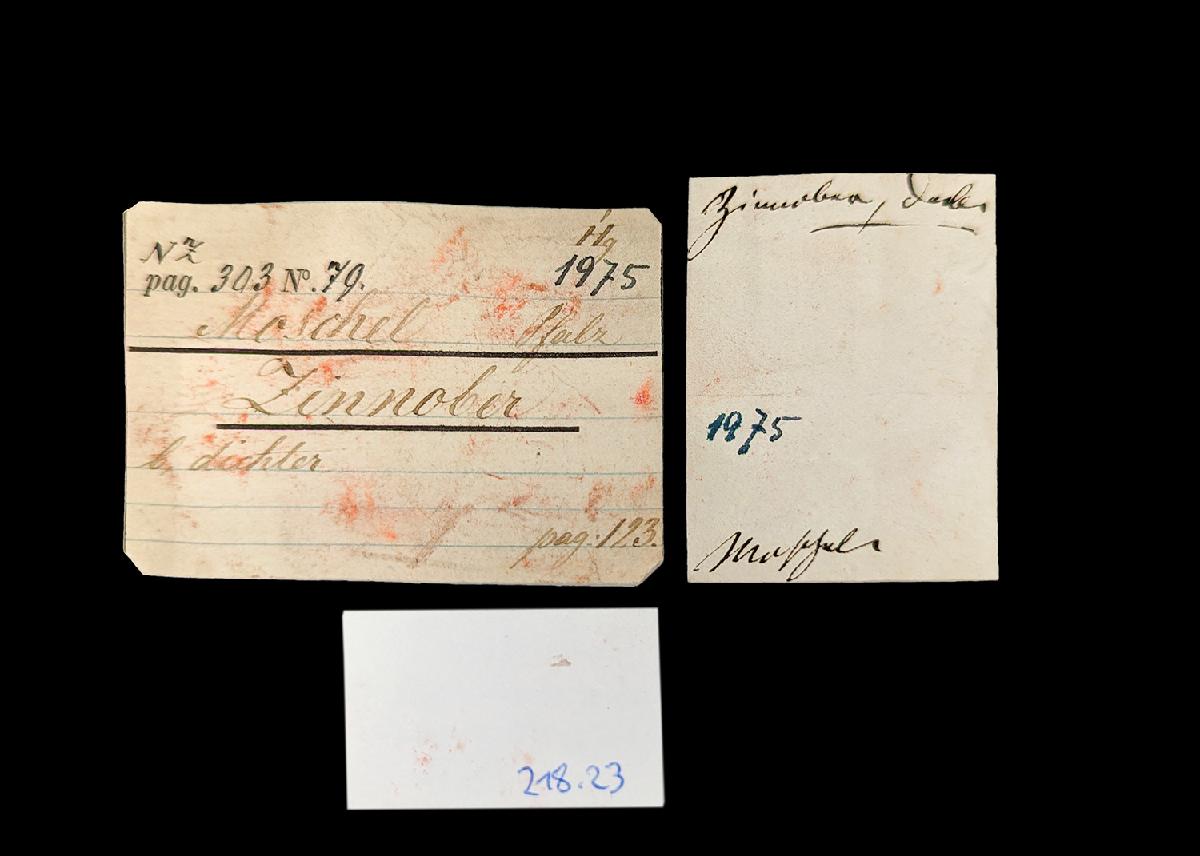 Hg
Nz
1975
pag. 303 No. 79.
Moschel Pfalz
Zinnober
b, dichter
pag. 123.
Zinnober,
1975
Moschel
218.23